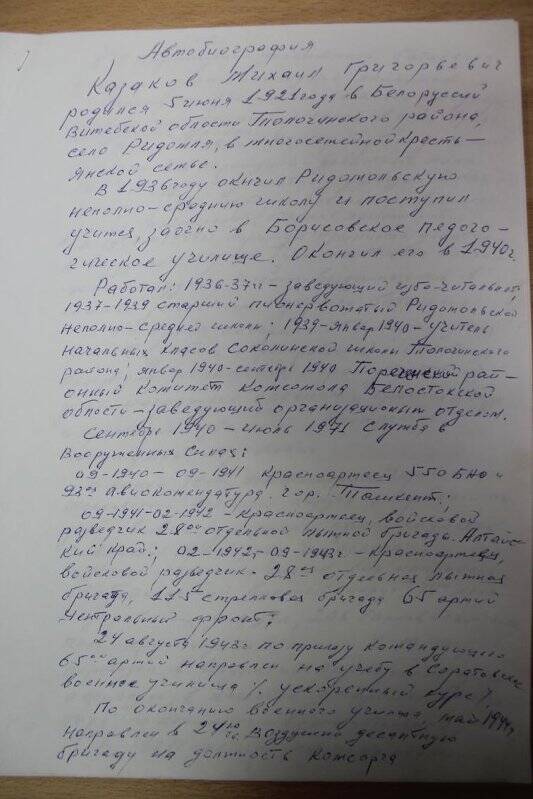 Автобиография
Казаков Михаил Григорьевич
родился 5 июня 1921 года в Белоруссий
Витебской области Толочинского района,
село Ридомля, в многосемейной кресть-
янской семье.
В 1936 году окнчил Ридомольскую
неполно-среднию школу и поступил
учится, заочно в Борисовское педого-
гическое училище. Окончил его в 1940 г.
Работал: 1936-37 гг - заведующий избо-читальней;
1937-1939 старший пионервожатый Ридомольской
неполно-средней школы; 1939-январ 1940 - учитель
начальных класов Соколинской школы Толочинского
района; январ 1940-сентябр 1940 рай-
онный комитет комсомола Белостокской
области - заведующий организационым отделом.
Сентябрь 1940 - июль 1971 служба в
Вооруженных Силах:
09-1940 - 09-1941 красноармеец 550 БАО и
93ая авиокомендатура. гор. Ташкент;
09-1941-02-1942 - красноармеец, войсковой
разведчик 28ой отдельной лыжной бригады. Алтайс-
кий край.; 02-1942 - 09-1943 г. - красноармеец,
войсковой разведчик - 28ая отдельная лыжная
бригада, 115я стрелковая бригада 65 армий
Центральный фронт;
24 августа 1943 г по приказу командующего
65ой армий направлен на учебу в Саратовское
военное училища /. ускоренный курс /.
По окончанию военного училища, май 1944 г,
направлен в 24ю гв. Воздушно десантную
бригаду на должность комсорга